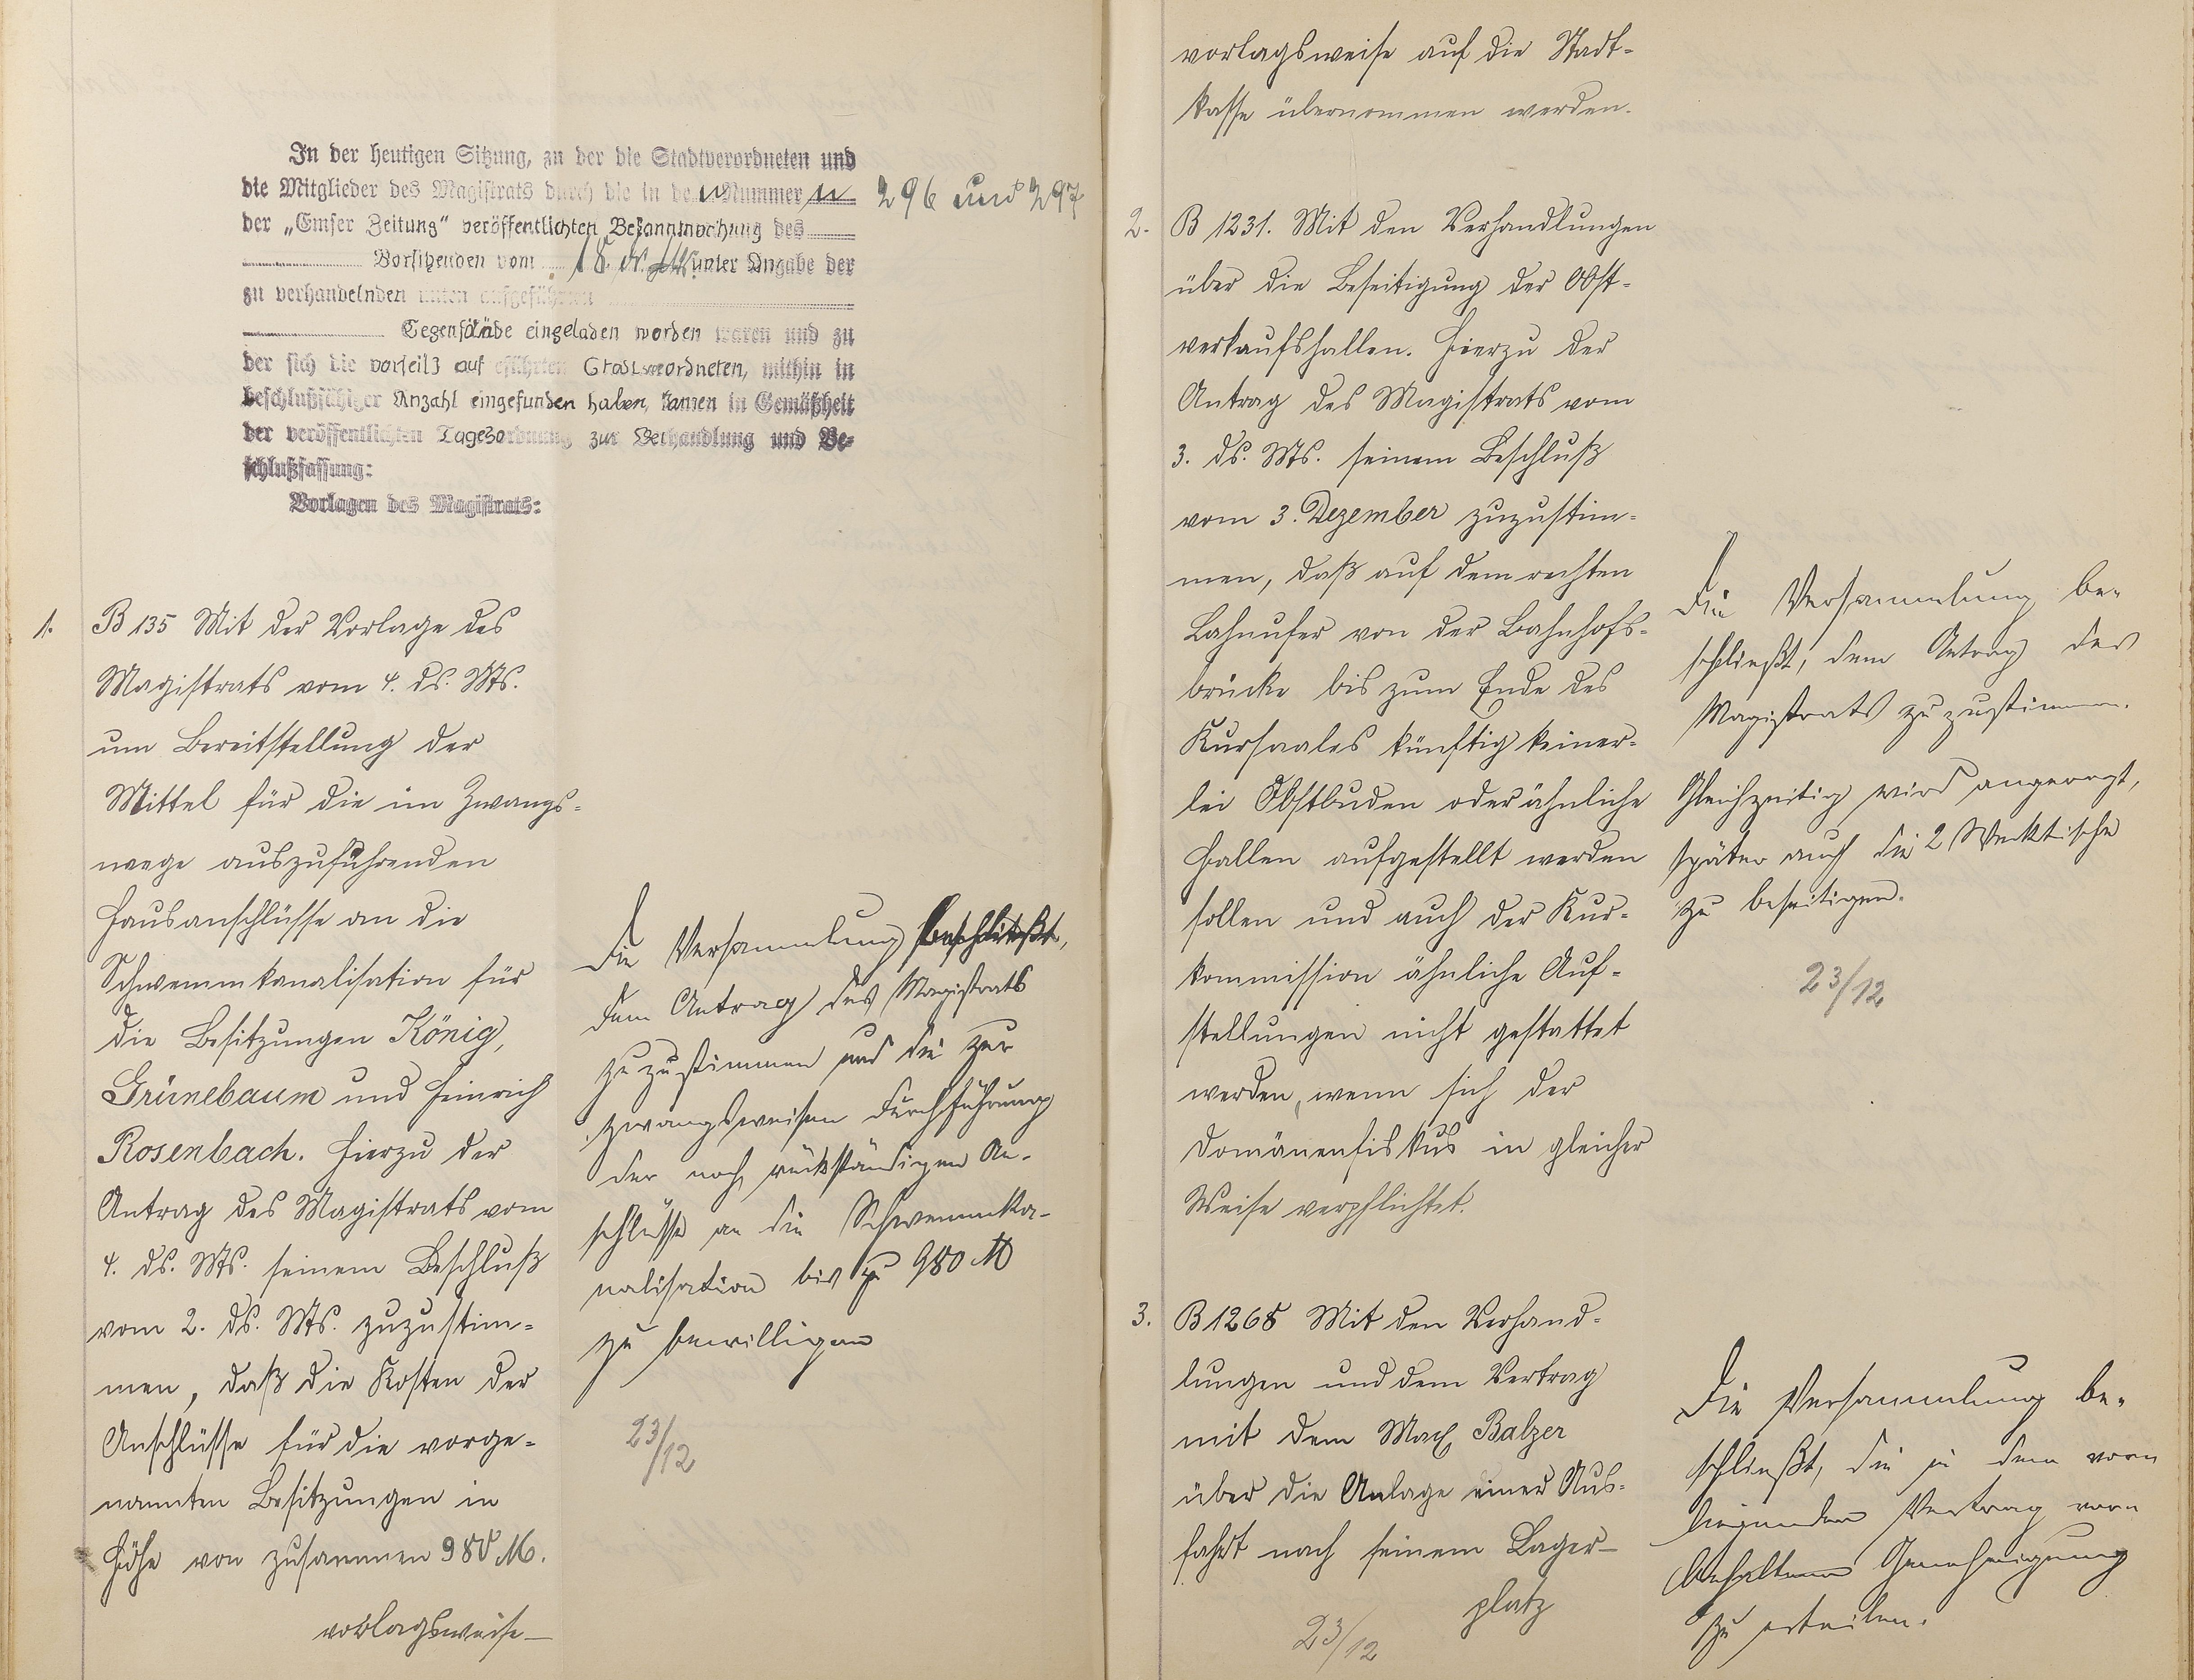 In der heutigen Sitzung, zu der die Stadtverordneten und
die Mitglieder des Magistrats durch die in den Nummern 296 und 297
der „Emser Zeitung“ veröffentlichten Bekanntmachung des
Vorsitzenden vom 18. ds. Mts. unter Angabe der
zu verhandelnden unten aufgeführten
Gegenstände eingeladen worden waren und zu
der sich die vorseits aufgeführten Stadtverordneten, mithin in
beschlußfähiger Anzahl eingefunden haben, kamen in Gemäßheit
der veröffentlichten Tagesordnung zur Verhandlung und Be-
schlußfassung:
Vorlagen des Magistrats:
1. B 135 Mit der Vorlage des
Magistrats vom 4. ds. Mts.
um Bereitstellung der
Mittel für die im Zwangs-
wege auszuführenden
Hausanschlüsse an die
Schwemmkanalisation für
die Besitzungen König,
Grünebaum und Heinrich
Rosenbach. Hierzu der
Antrag des Magistrats vom
4. ds. Mts. seinem Beschluß
vom 2. ds. Mts. zuzustim-
men, daß die Kosten der
Anschlüsse für die vorge-
nannten Besitzungen in
Höhe von zusammen 980 M.
vorlagsweise
Die Versammlung beschließt,
dem Antrag des Magistrats
zuzustimmen und die zur
zwangsweisen Durchführung
der noch rückständigen An-
schlüsse an die Schwemmka-
nalisation bis zu 980 M
zu bewilligen
23/12
vorlagsweise auf die Stadt-
kasse übernommen werden.
2. B 1231. Mit den Verhandlungen
über die Beseitigung der Obst-
verkaufshallen. Hierzu der
Antrag des Magistrats vom
3. ds. Mts. seinem Beschluß
vom 3. Dezember zuzustim-
men, daß auf dem rechten
Lahnufer von der Bahnhofs-
brücke bis zum Ende des
Kursaales künftig keiner-
lei Obstbuden oder ähnliche
Hallen aufgestellt werden
sollen und auch der Kur-
kommission ähnliche Auf-
stellungen nicht gestattet
werden, wenn sich der
Domänenfiskus in gleicher
Weise verpflichtet.
Die Versammlung be-
schließt, dem Antrag des
Magistrats zuzustimmen.
Gleichzeitig wird angeregt,
später auch die 2
zu beseitigen.
23/12
3. B 1268 Mit den Verhand-
lungen und dem Vertrag
mit dem Max Balzer
über die Anlage einer Aus-
fahrt nach seinem Lager-
platz
23/12
Die Versammlung be-
schließt, die in dem vor-
liegenden Vertrag vor-
behaltene Genehmigung
zu erteilen.